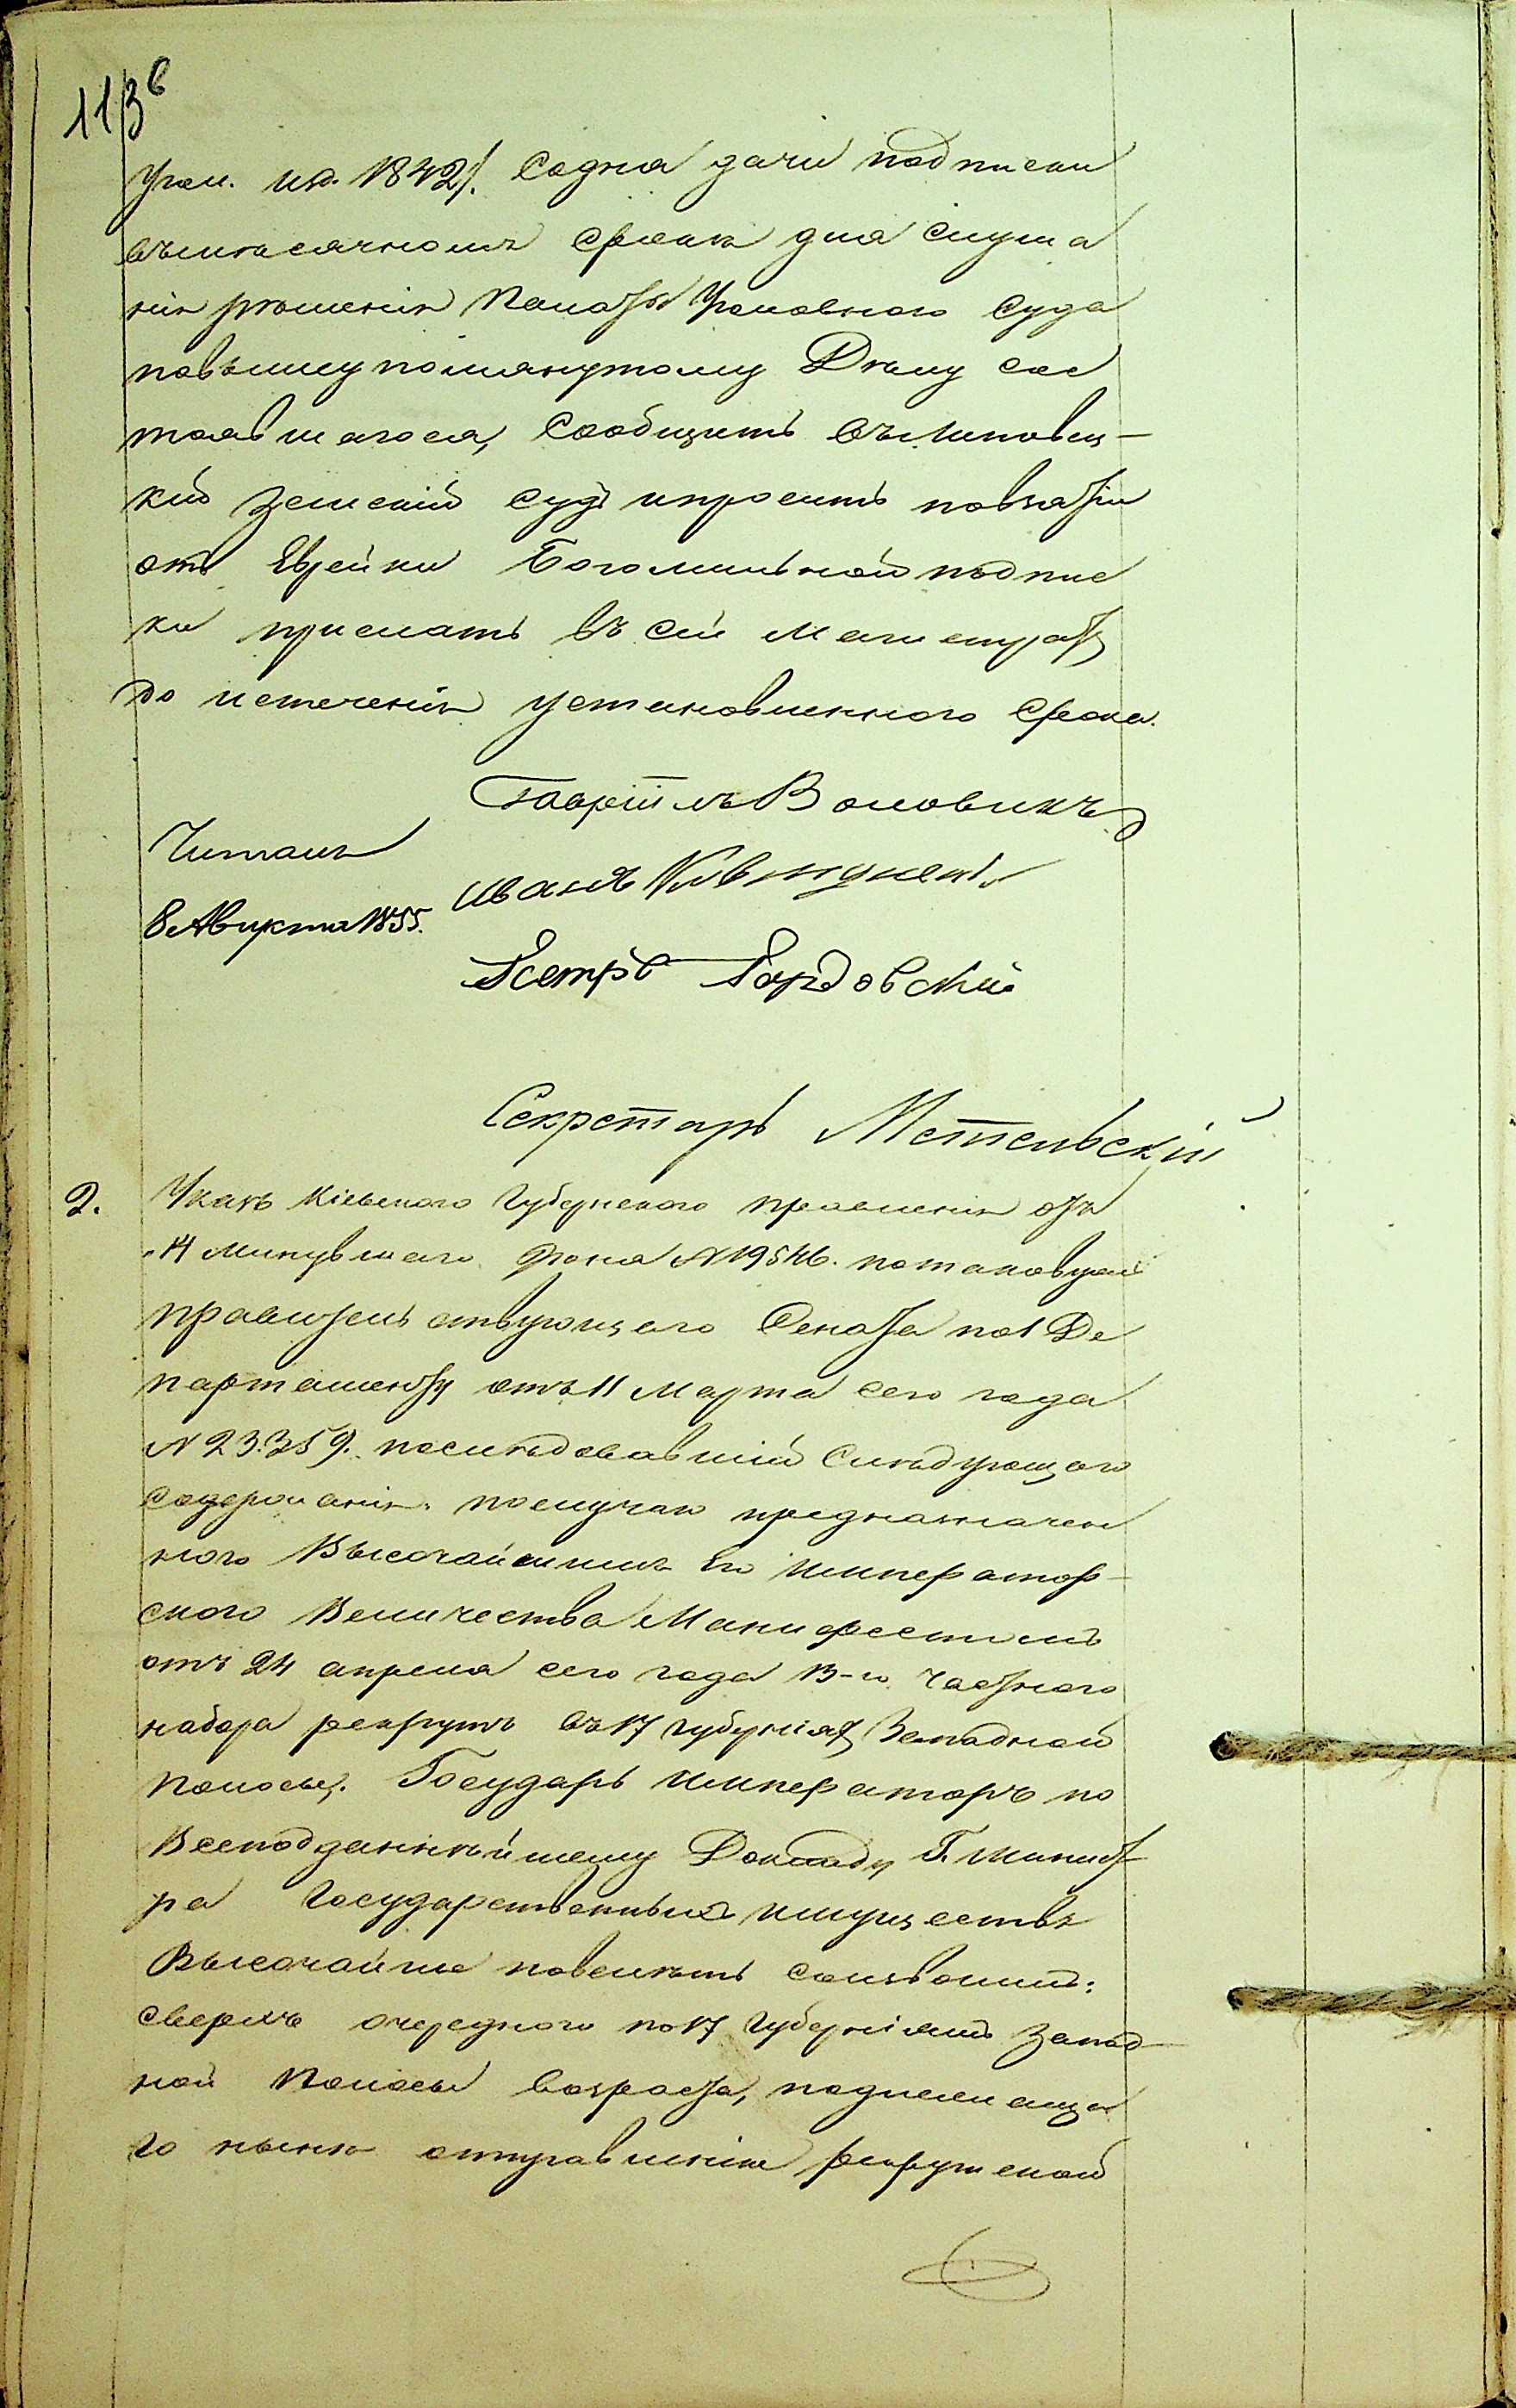 113 б
Угол. изд. 1842 г. со дня дачи подписки
въ мѣсячномъ срокѣ для слуша
нія рѣшенія Палаты Уголовнаго Суда
по вышеупомянутому Дѣлу сос
тоявшагося, сообщить въ Липовец-
кій Земскій судъ и просить по взятіи
отъ Еврейки Богомильной подпис
ки прислать въ сей Магистратъ
до истеченія установленнаго срока.
Гавріилъ Воловикъ
Читалъ
Иванъ
8 Августа 1855.
Петръ Гордовскій
Секретарь Метельскій
2. Указъ Кіевскаго Губернскаго правленія отъ
14 минувшаго Іюня N 19546. по таковому
Правительствующаго Сената по 1 Де
партаменту отъ 11 Марта сего года
N 23.359. послѣдовавшій слѣдующаго
содержанія. по случаю предназначен
наго Высочайшимъ Его Император-
скаго Величества Манифестомъ
отъ 24 апреля сего года 13-го частнаго
набора рекрутъ въ 17 губерніяхъ Западной
полосы. Государь Императоръ по
Всеподданнѣйшему Докладу Г. Минист
ра Государственныхъ имуществъ
Высочайше повелѣть соизволилъ:
сверхъ очереднаго по 17 Губерніямъ Запад
ной Полосы возраста, подлежаща
го нынѣ отправленію рекрутской